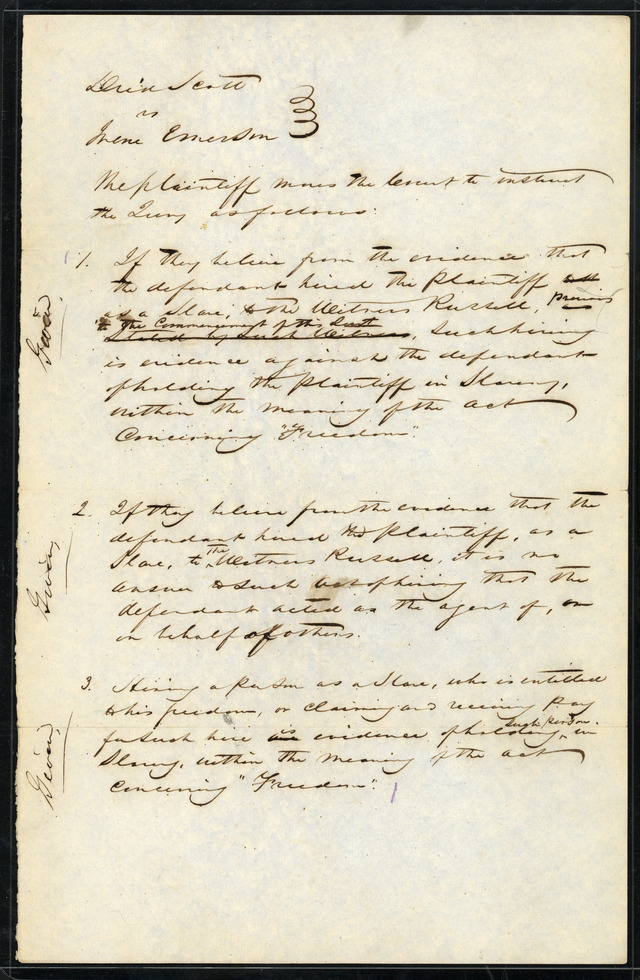 Dred Scott
vs
Irene Emerson
The plaintiff moves the Court to instruct
the Jury as follows:
1. If they believe from the evidence that
the defendant hired the Plaintiff
as a Slave, to the Witness Russell, previous
to the Commencement of this Suit
Stated by such Witness, such hiring
is evidence against the defendant
of holding the Plaintiff in Slavery,
within the meaning of the act
Concerning "Freedom".
Given
2. If they believe from the evidence that the
defendant hired the Plaintiff, as a
Slave, to the Witness Russell, it is no
answer to such act of hiring that the
defendant acted as the agent of, or
on behalf of others.
Given
3. Hiring a person as a Slave, who is entitled
to his freedom, or claiming and receiving pay
for such hire is evidence of holding such person in
Slavery, within the meaning of the act
Concerning "Freedom".
Given